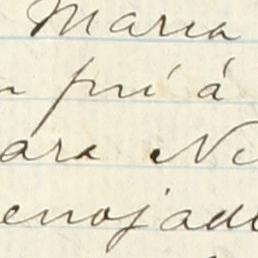 Maria
fui á
ara Ne
enojad